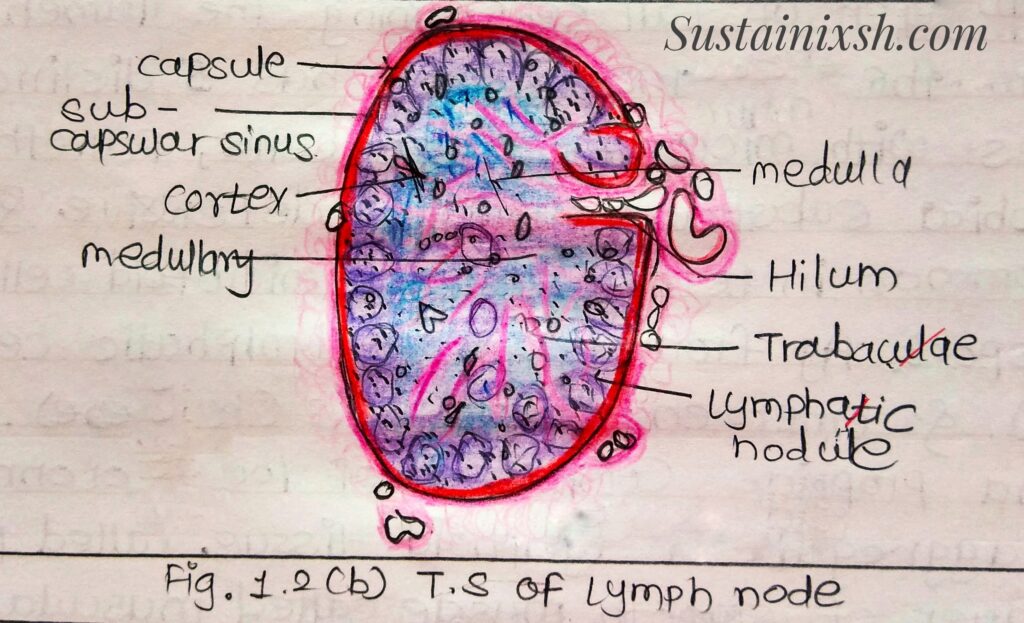 Sustainixsh.com
capsule
sub-
capsular sinus
cortex
medullary
medulla
Hilum
Trabaculae
Lymphatic
nodule
Fig. 1.2(b) T.S of Lymph node